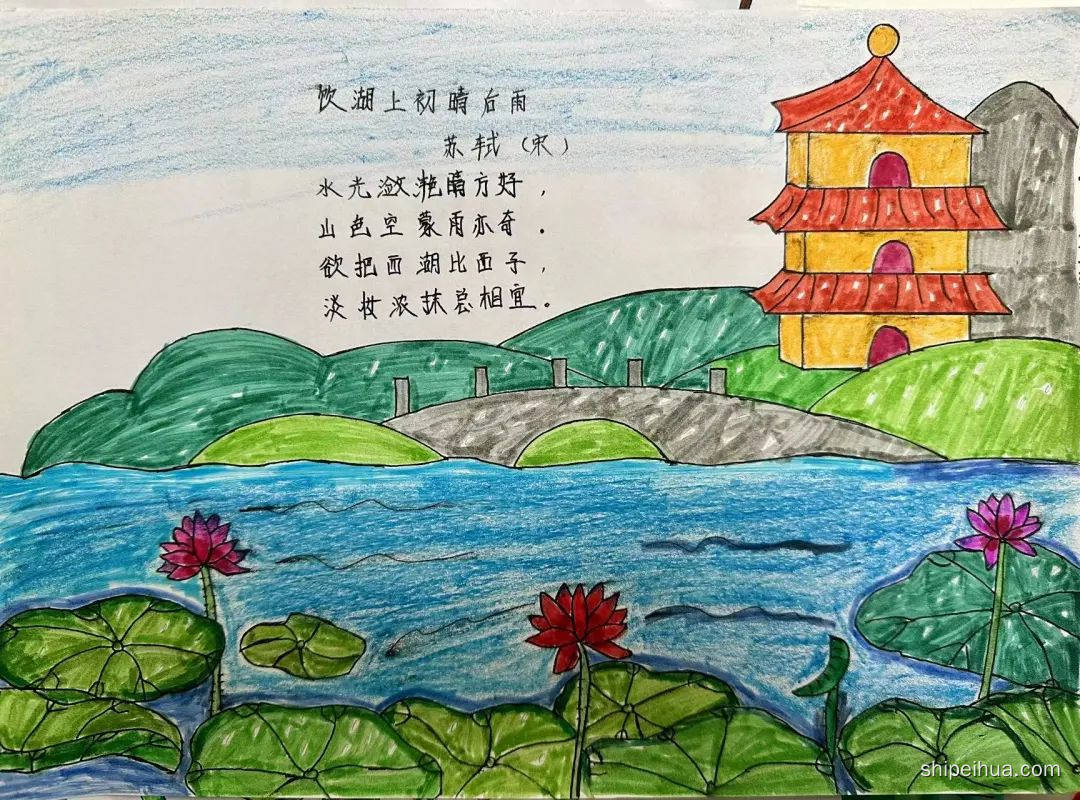 饮湖上初晴后雨
苏轼（宋）
水光潋滟晴方好，
山色空蒙雨亦奇。
欲把西湖比西子，
淡妆浓抹总相宜。
shipeihua.com